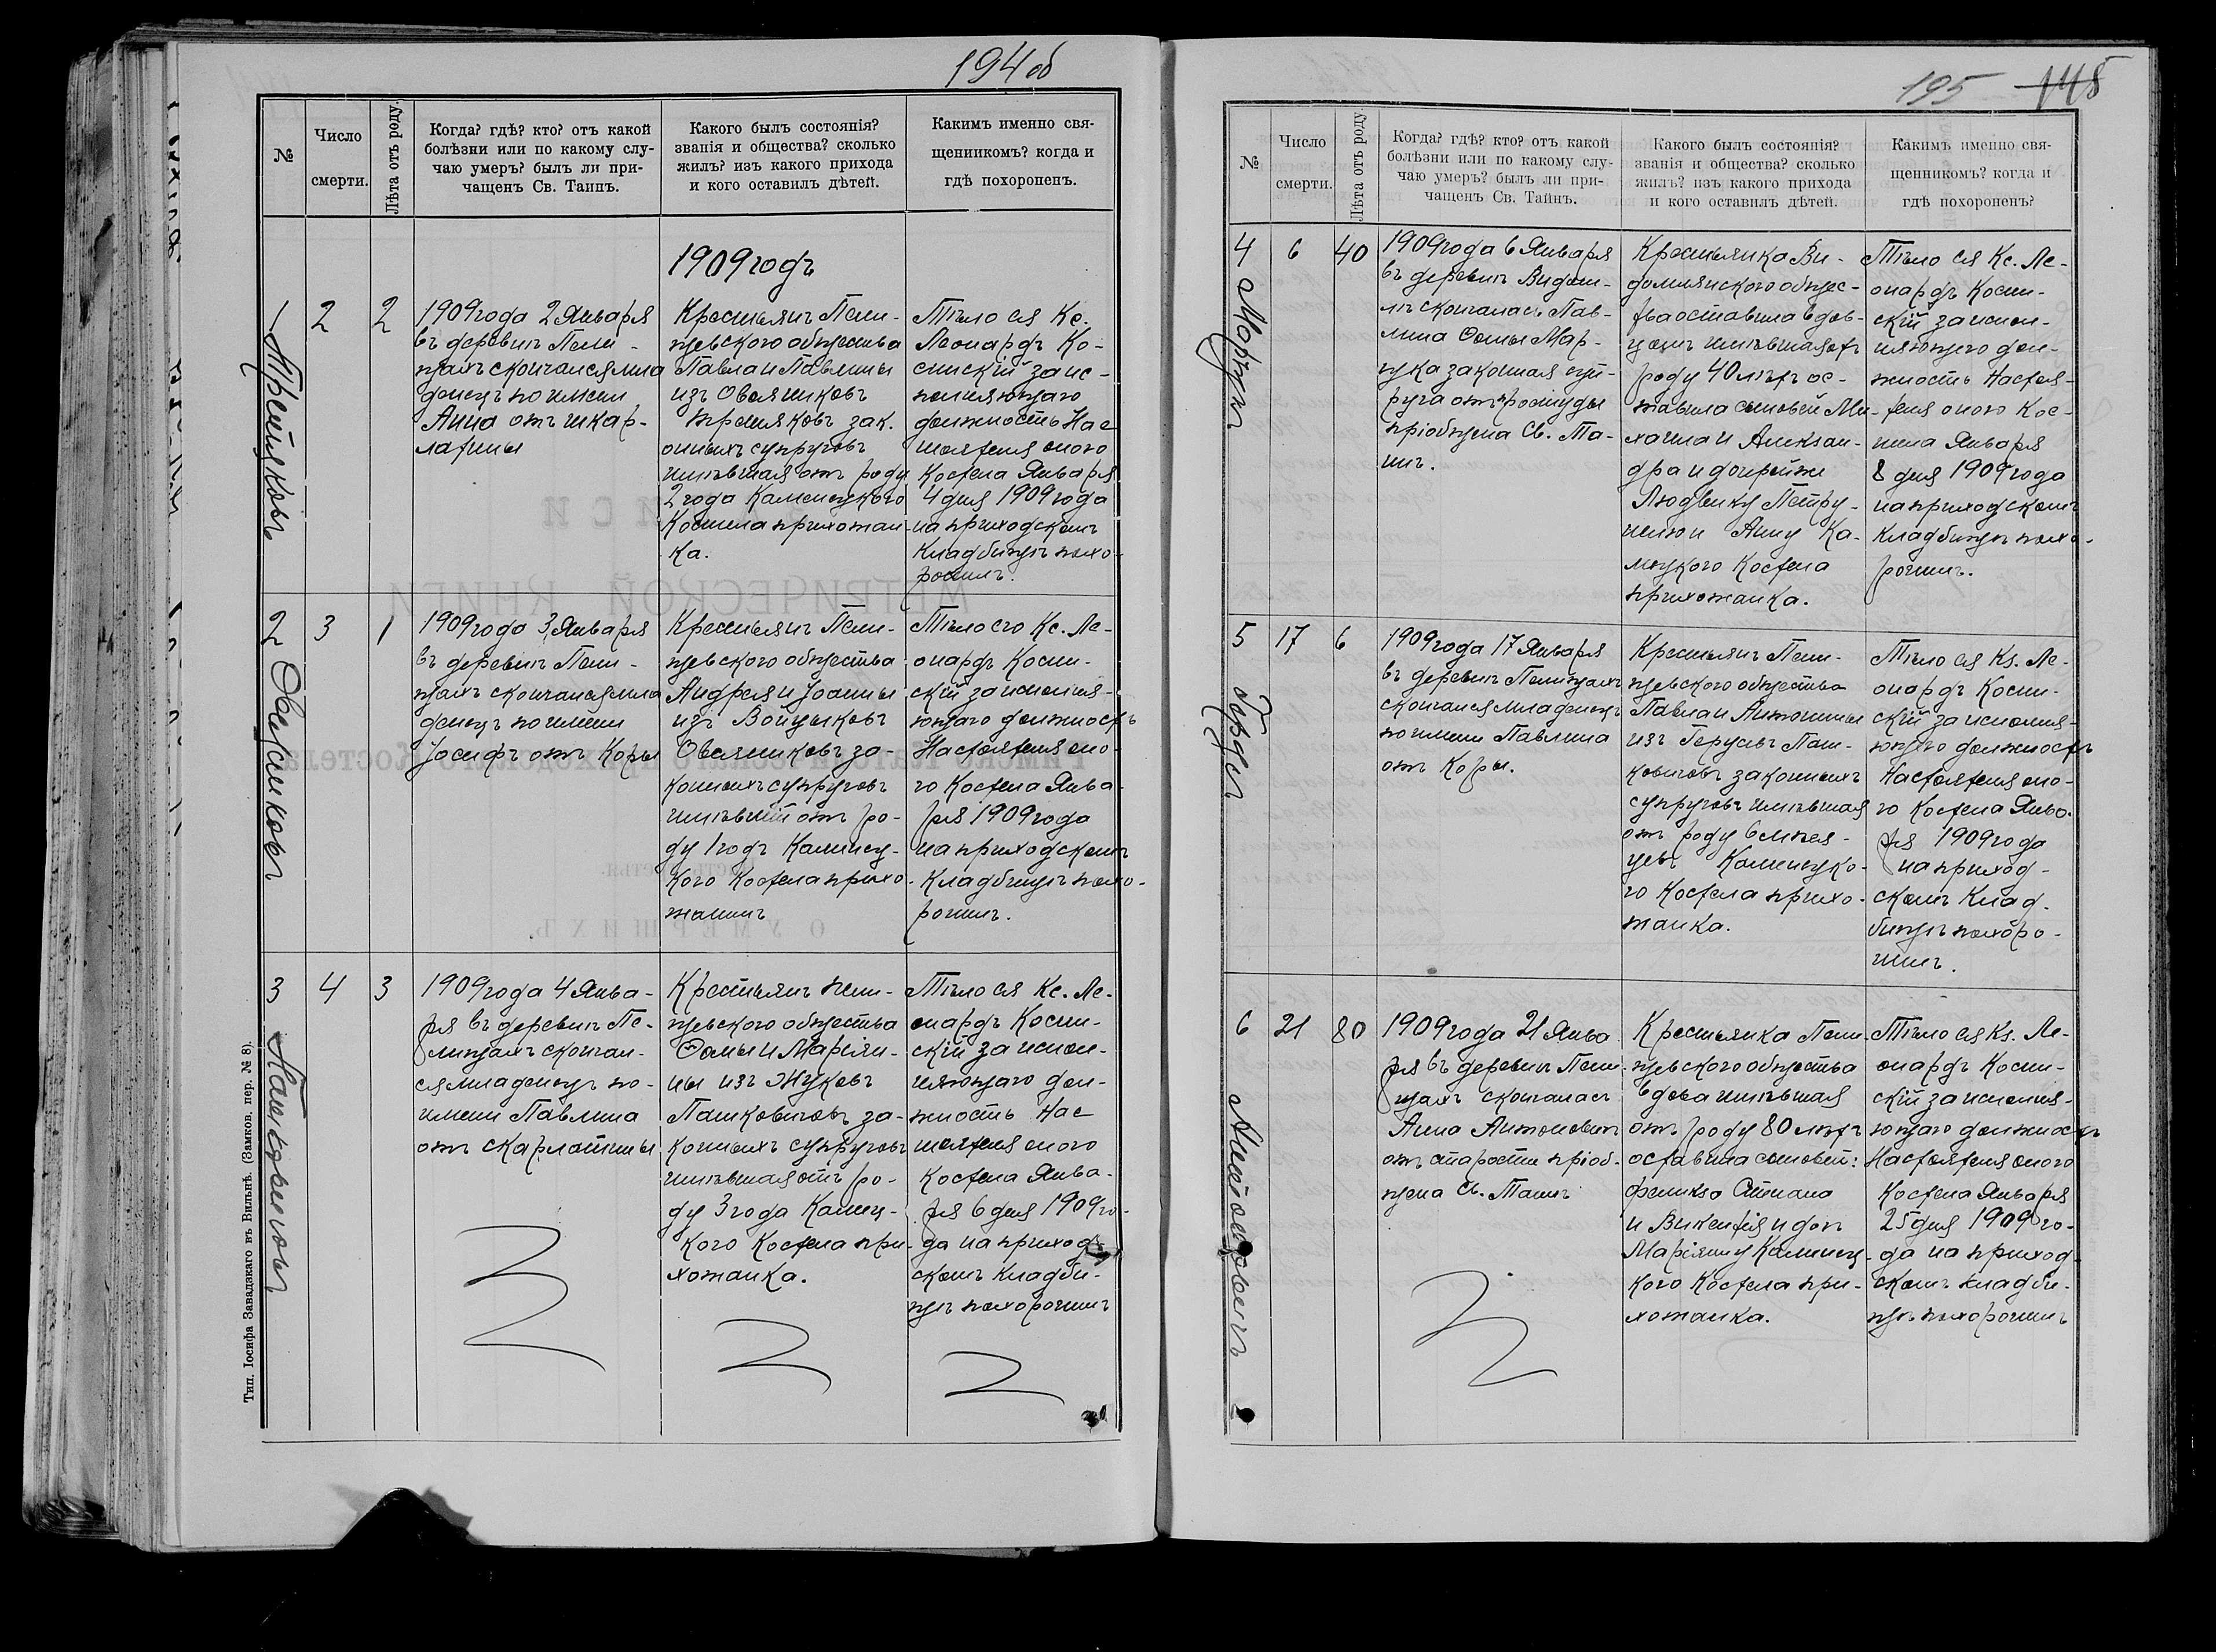 194 об
№
Число
смерти.
Лѣта отъ роду.
Когда? гдѣ? кто? отъ какой
болѣзни или по какому слу-
чаю умеръ? былъ ли при-
чащенъ Св. Таинъ.
Какого былъ состоянія?
званія и общества? сколько
жилъ? изъ какого прихода
и кого оставилъ дѣтей.
Какимъ именно свя-
щенникомъ? когда и
гдѣ похороненъ.
1909 годъ
1
2
2
1909 года 2 Января
въ деревнѣ Пели-
щахъ скончался мла
денецъ по имени
Анна отъ шкар-
латины
Крестьянъ Пели-
щевского общества
Павла и Павлины
изъ
зак.
онныхъ супруговъ
имѣвшая отъ роду
2 года Каменецкого
Костела прихожан-
ка.
Тѣло ея Кс.
Леонардъ Ко-
синскій за ис-
полняющаго
должность Нас
тоятеля оного
Костела Января
4 дня 1909 года
на приходскомъ
кладбищѣ похо-
ронилъ.
2
3
1
1909 года 3 Января
въ деревнѣ Пели-
щахъ скончался мла
денецъ по имени
Іосифъ отъ Коры
Крестьянъ Пели-
щевского общества
Андрея и Іоанны
изъ Войцѣховъ
за-
конныхъ супруговъ
имѣвшій отъ ро-
ду 1 годъ Каминец-
кого Костела прихо-
жанинъ
Тѣло его Кс. Ле-
онардъ Косин-
скій за исполня-
ющаго должность
Настоятеля оно-
го Костела Янва-
ря 1909 года
на приходскомъ
кладбищѣ похо-
ронилъ.
3 Пашковичъ
4
3
1909 года 4 Янва-
ря въ деревнѣ Пе-
лищахъ скончал-
ся младенецъ по-
имени Павлина
отъ скарлатины
Крестьянъ Пели-
щевского общества
Ѳомы и Маріян-
ны изъ Жуковъ
Пашковичовъ за-
конныхъ супруговъ
имѣвшая отъ ро-
ду 3 года Каминец-
кого Костела при-
хожанка.
Тѣло ея Кс. Ле-
онардъ Косин-
скій за испол-
няющаго дол-
жность Нас
тоятеля оного
Костела Янва-
ря 6 дня 1909 го-
да на приход-
скомъ кладби-
щѣ похоронилъ
Тип. Іосифа Завадзкаго въ Вильнѣ. (Замков. пер. № 8).
195
№
Число
смерти.
Лѣта отъ роду.
Когда? гдѣ? кто? отъ какой
болѣзни или по какому слу-
чаю умеръ? былъ ли при-
чащенъ Св. Таинъ.
Какого былъ состоянія?
званія и общества? сколько
жилъ? изъ какого прихода
и кого оставилъ дѣтей.
Какимъ именно свя-
щенникомъ? когда и
гдѣ похороненъ?
4
6
40
1909 года 6 Января
въ деревнѣ Видом-
лѣ скончалась Пав-
лина Ѳомы Мар-
законная суп-
руга отъ простуды
пріобщена Св. Та-
инъ.
Крестьянка Ви-
домлянского общес-
тва оставила вдов-
цомъ имѣвшая отъ
роду 40 лѣтъ ос-
тавила сыновей Ми-
хаила и Алексан-
дра и дочерей
Людвику Петру-
нелю и Анну Ка-
Костела
прихожанка.
Тѣло ея Кс. Ле-
онардъ Косин-
скій за испол-
няющего дол-
жность Настоя-
теля оного Кос-
тела Января
8 дня 1909 года
на приходскомъ
кладбищѣ похо-
ронилъ.
5
17
6
1909 года 17 Января
въ деревнѣ Пелищахъ
скончался младенецъ
по имени Павлина
отъ Коры.
Крестьянъ Пели-
щевского общества
Павла и Антонины
изъ Паш-
ковичовъ законныхъ
супруговъ имѣвшая
отъ роду 6 мѣся-
цевъ Каменецко-
го Костела прихо-
жанка.
Тѣло ея Кs. Ле-
онардъ Косин-
скій за исполня-
ющего должность
Настоятеля оно-
го Костела Янва-
ря 1909 года
на приход-
скомъ клад-
бищѣ похоро-
нилъ.
6
21
80
1909 года 21 Янва
ря въ деревнѣ Пели-
щахъ скончалась
Анна Антоновичъ
отъ старости пріоб-
щена Св. Таинъ
Крестьянка Пели-
щевского общества
вдова имѣвшая
отъ роду 80 лѣтъ
оставила сыновей:
Феликса Степана
и Викентія и доч
Маріянну Каминец-
кого Костела при-
хожанка.
Тѣло ея Кs. Ле-
онардъ Косин-
скій за исполня-
ющаго должность
Настоятеля оного
Костела Января
25 дня 1909 го-
да на приход-
скомъ кладби-
щѣ похоронилъ